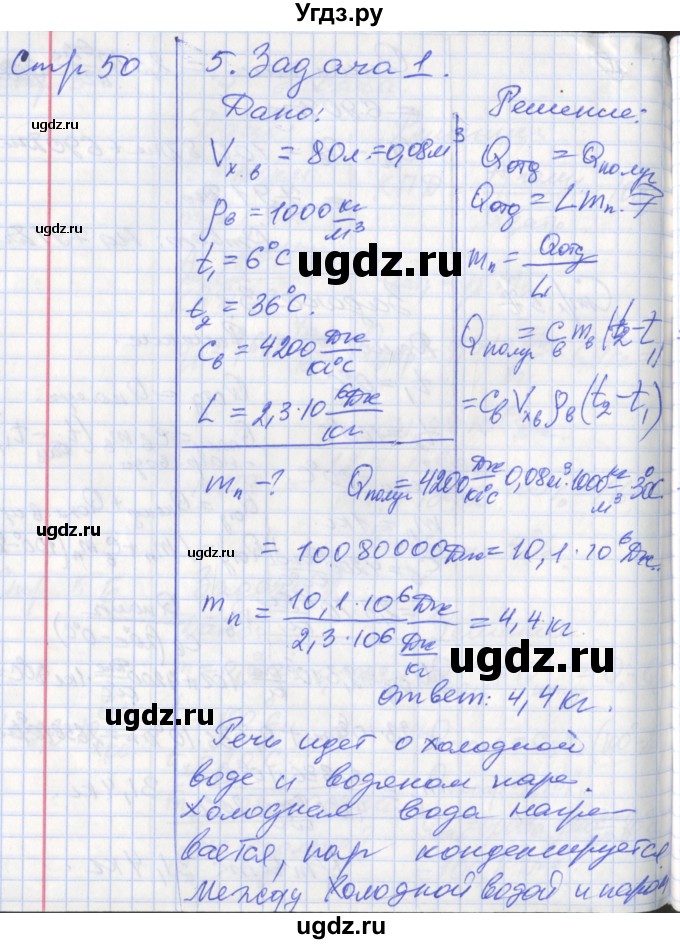 Угдз.ру
Стр 50
5. Задача 1.
Дано:
Vх.в = 80л. = 0,08м³
ρв = 1000 кг/м³
t₁ = 6°С
t₂ = 36°С.
cв = 4200 Дж/кг°С
L = 2,3·10⁶ Дж/кг
mп - ?
Решение:
Qотд = Qполуч
Qотд = Lmп. ⇒
mп = Qотд/L
Qполуч = cв mв (t₂ - t₁) =
= cв Vхв ρв (t₂ - t₁)
Qполуч = 4200 Дж/кг°С · 0,08м³ · 1000 кг/м³ · 30°С
= 10080000 Дж = 10,1 · 10⁶ Дж.
mп = 10,1·10⁶ Дж / 2,3·10⁶ Дж/кг = 4,4 кг.
ответ: 4,4 кг.
Речь идет о холодной
воде и водяном паре.
Холодная вода нагре-
вается, пар конденсируется.
Между холодной водой и паром
ugdz.ru
ugdz.ru
ugdz.ru
ugdz.ru
ugdz.ru
ugdz.ru
ugdz.ru
ugdz.ru
ugdz.ru